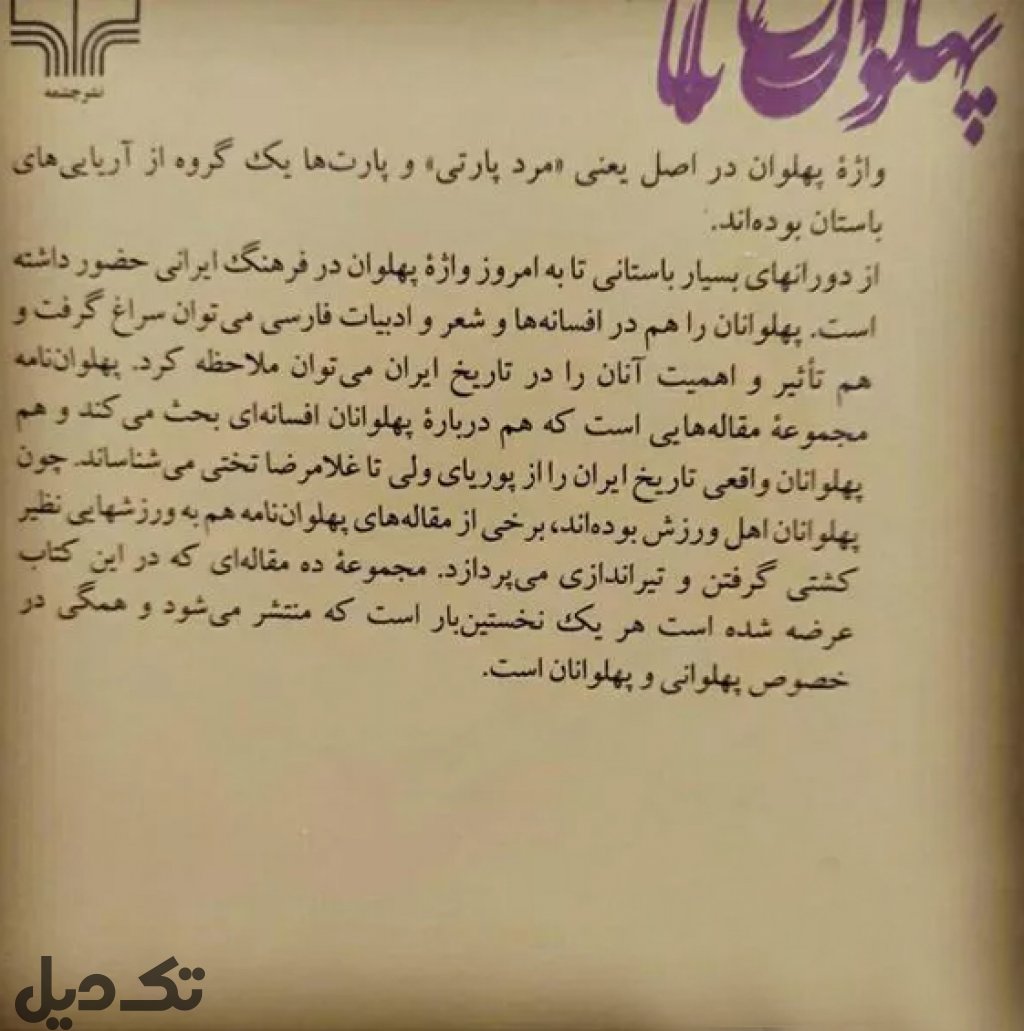 پهلوان نامه
نشر چشمه
واژهٔ پهلوان در اصل یعنی «مرد پارتی» و پارت‌ها یک گروه از آریایی‌های
باستان بوده‌اند.
از دورانهای بسیار باستانی تا به امروز واژهٔ پهلوان در فرهنگ ایرانی حضور داشته
است. پهلوانان را هم در افسانه‌ها و شعر و ادبیات فارسی می‌توان سراغ گرفت و
هم تأثیر و اهمیت آنان را در تاریخ ایران می‌توان ملاحظه کرد. پهلوان‌نامه
مجموعهٔ مقاله‌هایی است که هم دربارهٔ پهلوانان افسانه‌ای بحث می‌کند و هم
پهلوانان واقعی تاریخ ایران را از پوریای ولی تا غلامرضا تختی می‌شناساند. چون
پهلوانان اهل ورزش بوده‌اند، برخی از مقاله‌های پهلوان‌نامه هم به ورزشهایی نظیر
کشتی گرفتن و تیراندازی می‌پردازد. مجموعهٔ ده مقاله‌ای که در این کتاب
عرضه شده است هر یک نخستین‌بار است که منتشر می‌شود و همگی در
خصوص پهلوانی و پهلوانان است.
تک دیل